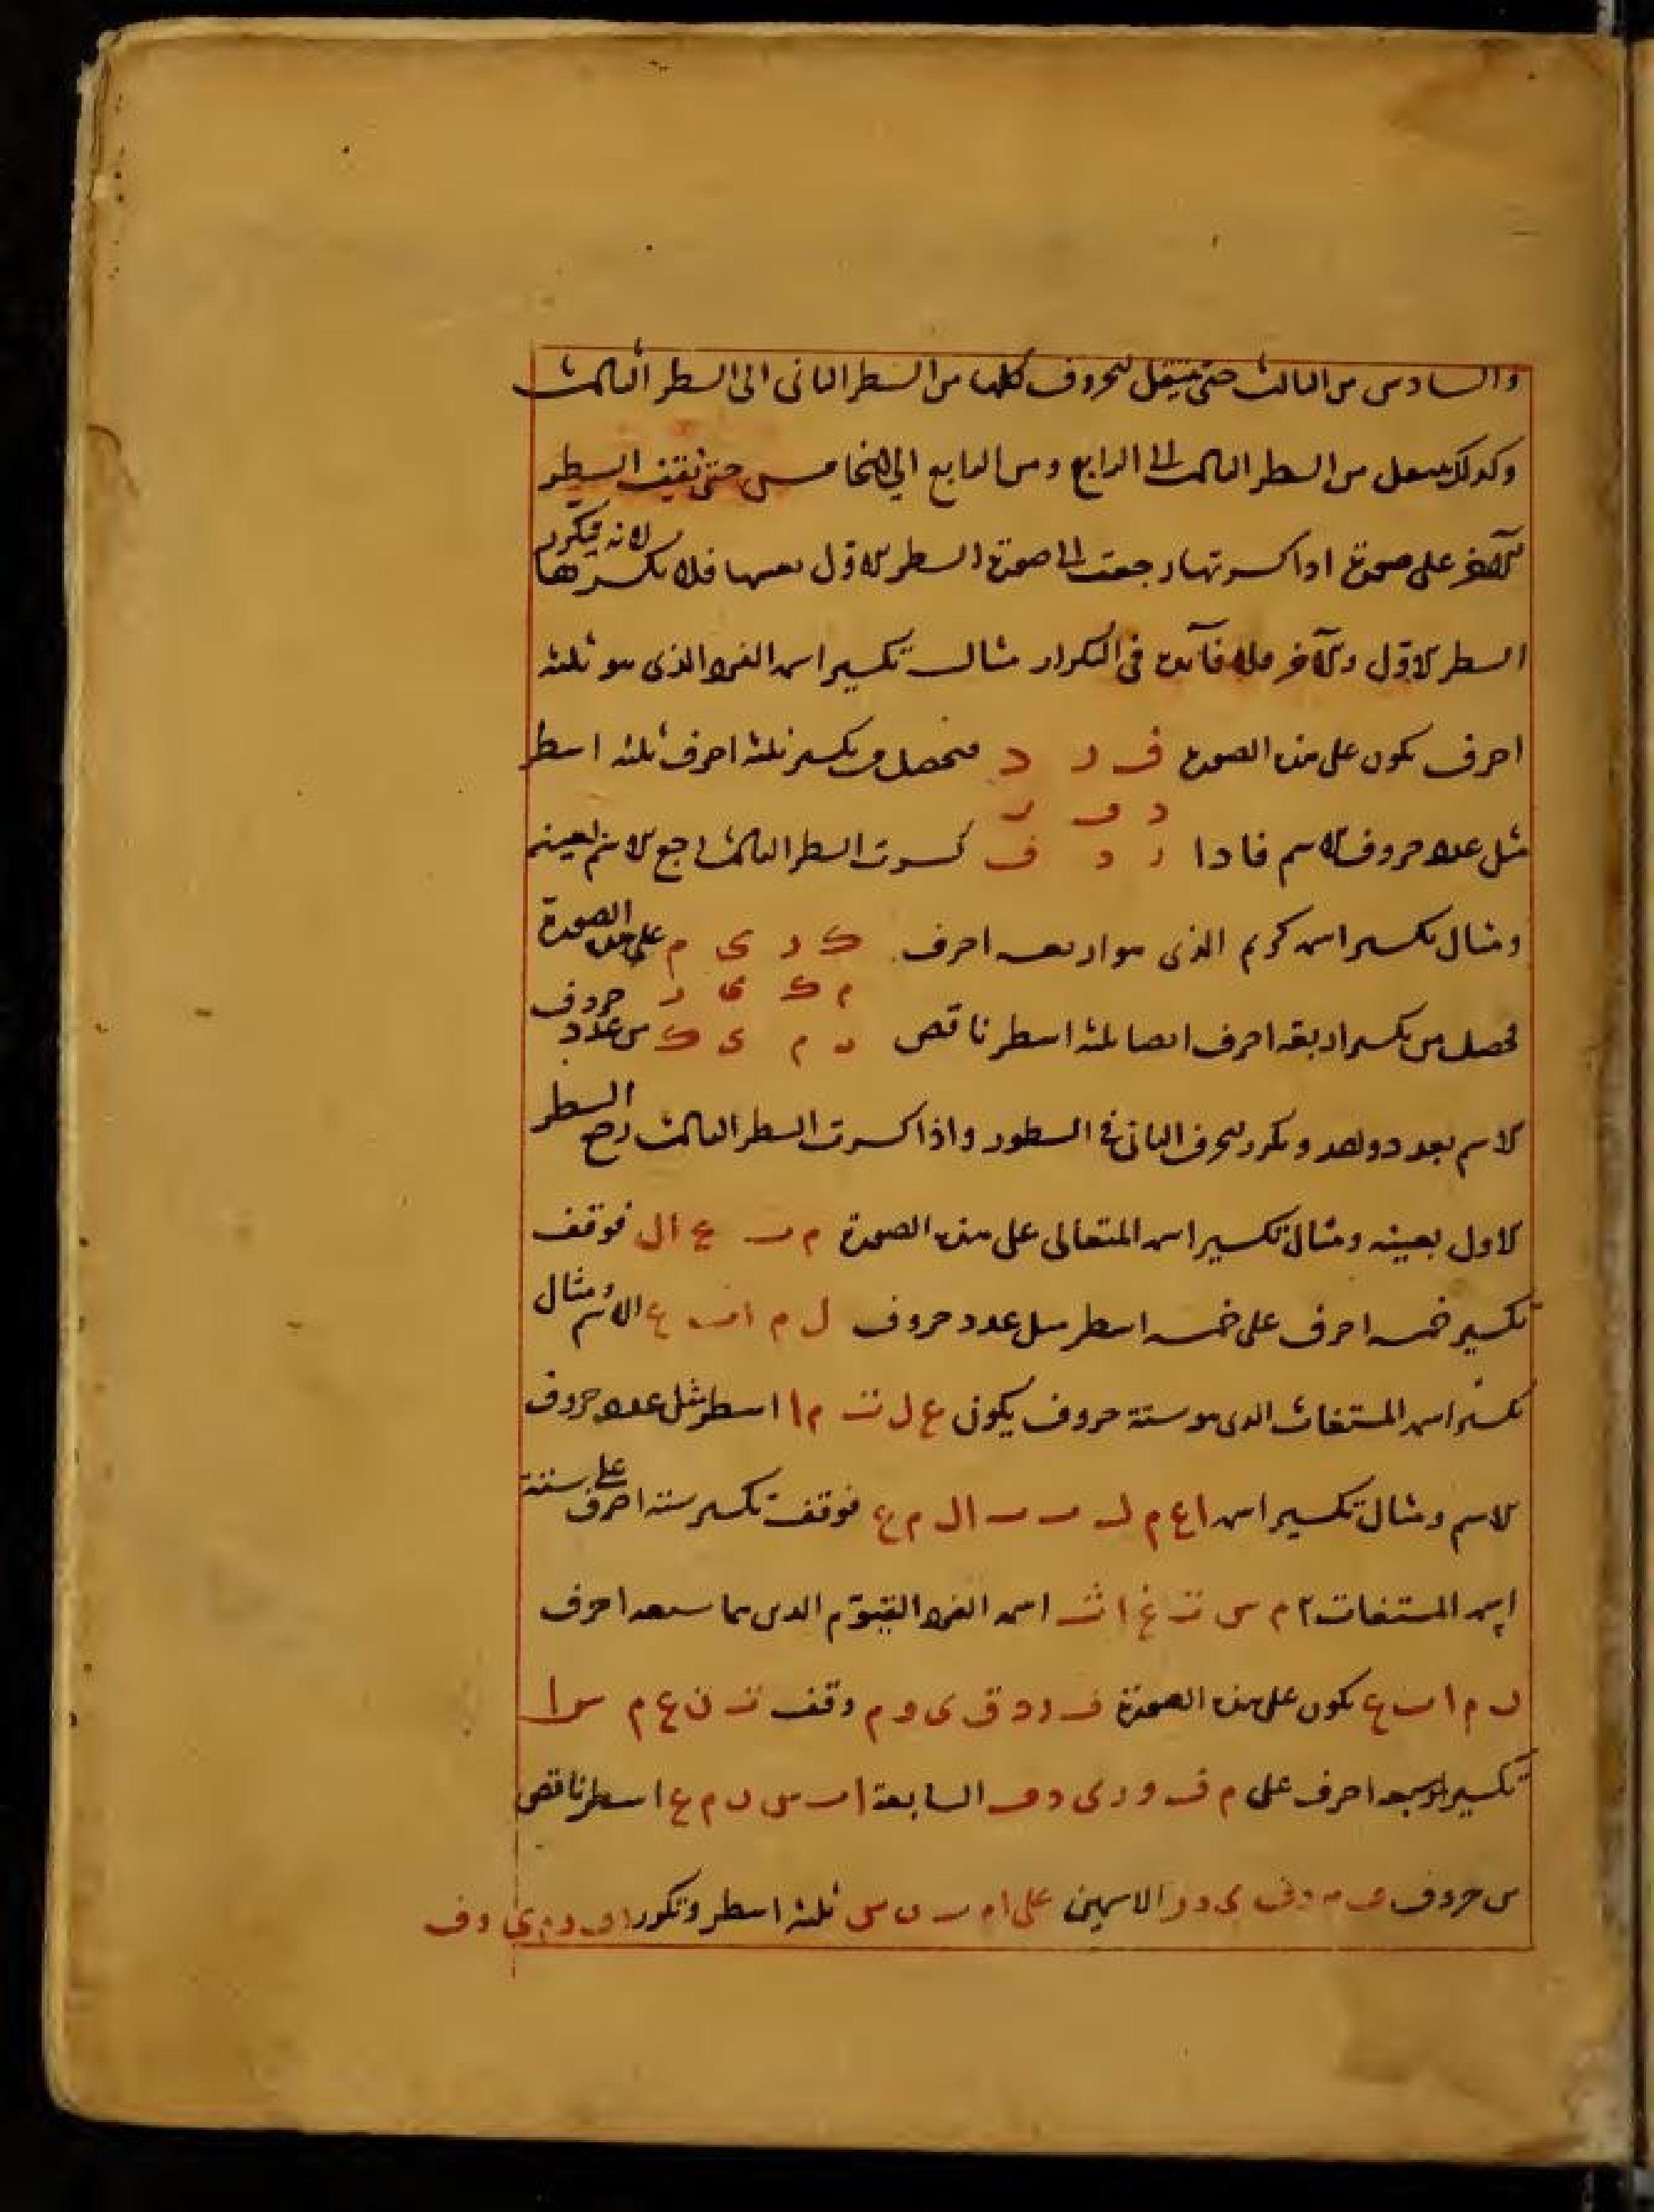 والسادس من الثالث حتى ينتقل الحروف كلها من السطر الثانى الى السطر الثالث
وكذلك من السطر الثالث الى الرابع ومن الرابع الى الخامس حتى تقف السطر
الآخر على صورة اذا كسرتها رجعت الى صورة السطر الاول بعينها فلا تكسرها لانه يتكرر
السطر الاول والآخر فلا فائدة فى التكرار مثال تكسير اسمه الفرد الذى هو ثلثه
احرف يكون على هذه الصورة ف ر د فتحصل من تكسير ثلثه احرف ثلثه اسطر
د ف ر
مثل عدد حروف الاسم فاذا ر د ف كسرت السطر الثالث رجع الاسم بعينه
ومثال تكسير اسمه كريم الذى هو اربعه احرف ك ر ى م على هذه الصورة
م ك ى ر حروف
تحصل من تكسير اربعة احرف ايضا ثلثه اسطر ناقص ر م ى ك من عدد
الاسم بعدد واحد وتكرر الحرف الثانى فى السطور واذا كسرت السطر الثالث رجع السطر
الاول بعينه ومثال تكسير اسمه المتعالى على هذه الصورة م ت ع ا ل فوقف
تكسير خمسه احرف على خمسه اسطر مثل عدد حروف ل م ا ت ع الاسم ومثال
تكسير اسمه المستغاث الذى هو ستة حروف يكون ع ل ت م ا اسطر مثل عدد حروف
الاسم ومثال تكسير اسمه ا ع م ل ت ت ا ل م ع فوقف تكسير ستة احرف على ستة
اسمه المستغاث م س ت غ ا ث اسمه الفرد القيوم الذى هما سبعه احرف
ل م ا ت ع يكون على هذه الصورة ف ر د ق ى و م وقف ث غ م س ا
تكسير سبعه احرف على م ف و ر ى د ق السابعة ا ث س ت م غ اسطر ناقص
من حروف الاسمين على ثلثه اسطر وتكرر